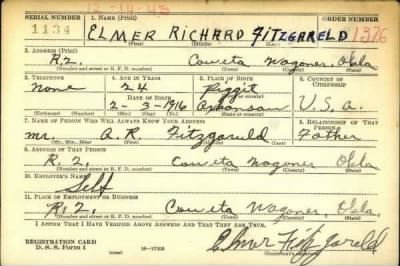 12-14-43
SERIAL NUMBER 1. NAME (Print) ORDER NUMBER
1134 ELMER RICHARD FITZGARELD 1376
(First) (Middle) (Last)
2. ADDRESS (Print)
R2. Coweta Wagoner, Okla
(Number and street or R. F. D. number) (Town) (County) (State)
3. TELEPHONE 4. AGE IN YEARS 5. PLACE OF BIRTH 6. COUNTRY OF CITIZENSHIP
None 24 U.S.A.
DATE OF BIRTH
2-3-1916 Arkansas
(Exchange) (Number) (Mo.) (Day) (Yr.) (State or country)
7. NAME OF PERSON WHO WILL ALWAYS KNOW YOUR ADDRESS 8. RELATIONSHIP OF THAT PERSON
Mr. A. R. Fitzgareld Father
(Mr., Mrs., Miss) (First) (Middle) (Last)
9. ADDRESS OF THAT PERSON
R. 2. Coweta Wagoner, Okla
(Number and street or R. F. D. number) (Town) (County) (State)
10. EMPLOYER'S NAME
Self
11. PLACE OF EMPLOYMENT OR BUSINESS
R. 2. Coweta Wagoner, Okla.
(Number and street or R. F. D. number) (Town) (County) (State)
I AFFIRM THAT I HAVE VERIFIED ABOVE ANSWERS AND THAT THEY ARE TRUE.
REGISTRATION CARD
D. S. S. Form 1 (over) 16-17105 Elmer Fitzgareld
(Registrant's signature)